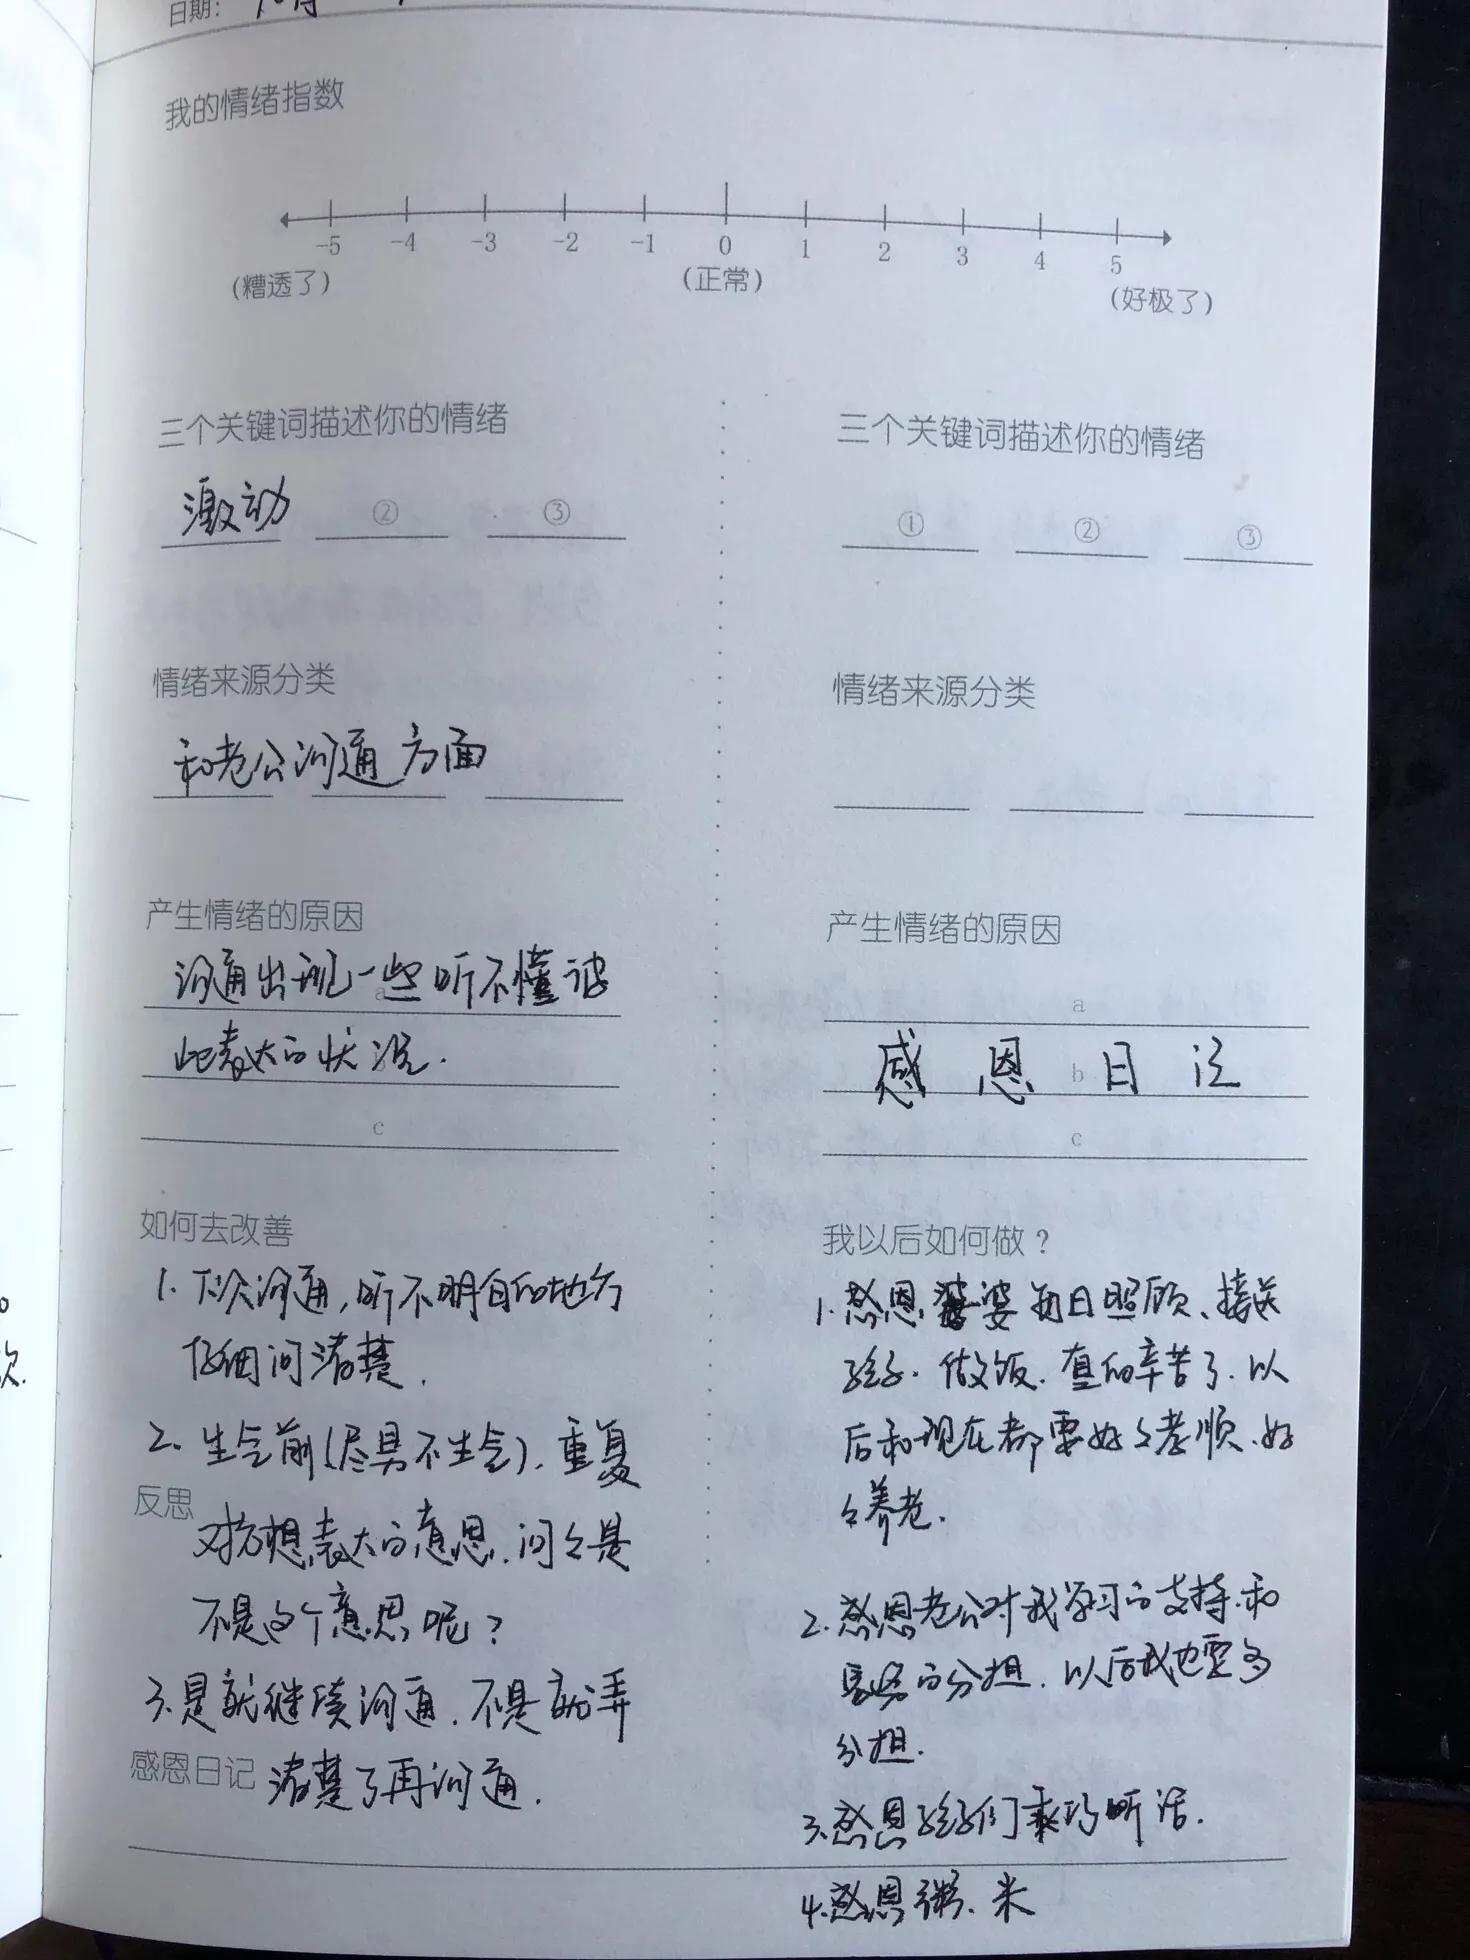 日期：
我的情绪指数
-5 -4 -3 -2 -1 0 1 2 3 4 5
(糟透了) (正常) (好极了)
三个关键词描述你的情绪
激动 ② ③
情绪来源分类
和老公沟通方面
产生情绪的原因
沟通出现一些听不懂彼
a
此表达的状况.
c
如何去改善
1. 下次沟通,听不明白的地方
仔细问清楚.
2. 生气前(尽量不生气),重复
反思
对方想表达的意思.问々是
不是这个意思呢?
3.是就继续沟通.不是就弄
感恩日记 清楚了再沟通.
三个关键词描述你的情绪
① ② ③
情绪来源分类
产生情绪的原因
a
感 恩 b 日 记
c
我以后如何做？
1.感恩婆婆每日照顾、接送
孩子.做饭.真的辛苦了.以
后和现在都要好々孝顺.好
々养老.
2.感恩老公对我学习的支持.和
家务的分担.以后我也要多
分担.
3.感恩孩子们乖巧听话.
4.感恩粥、米